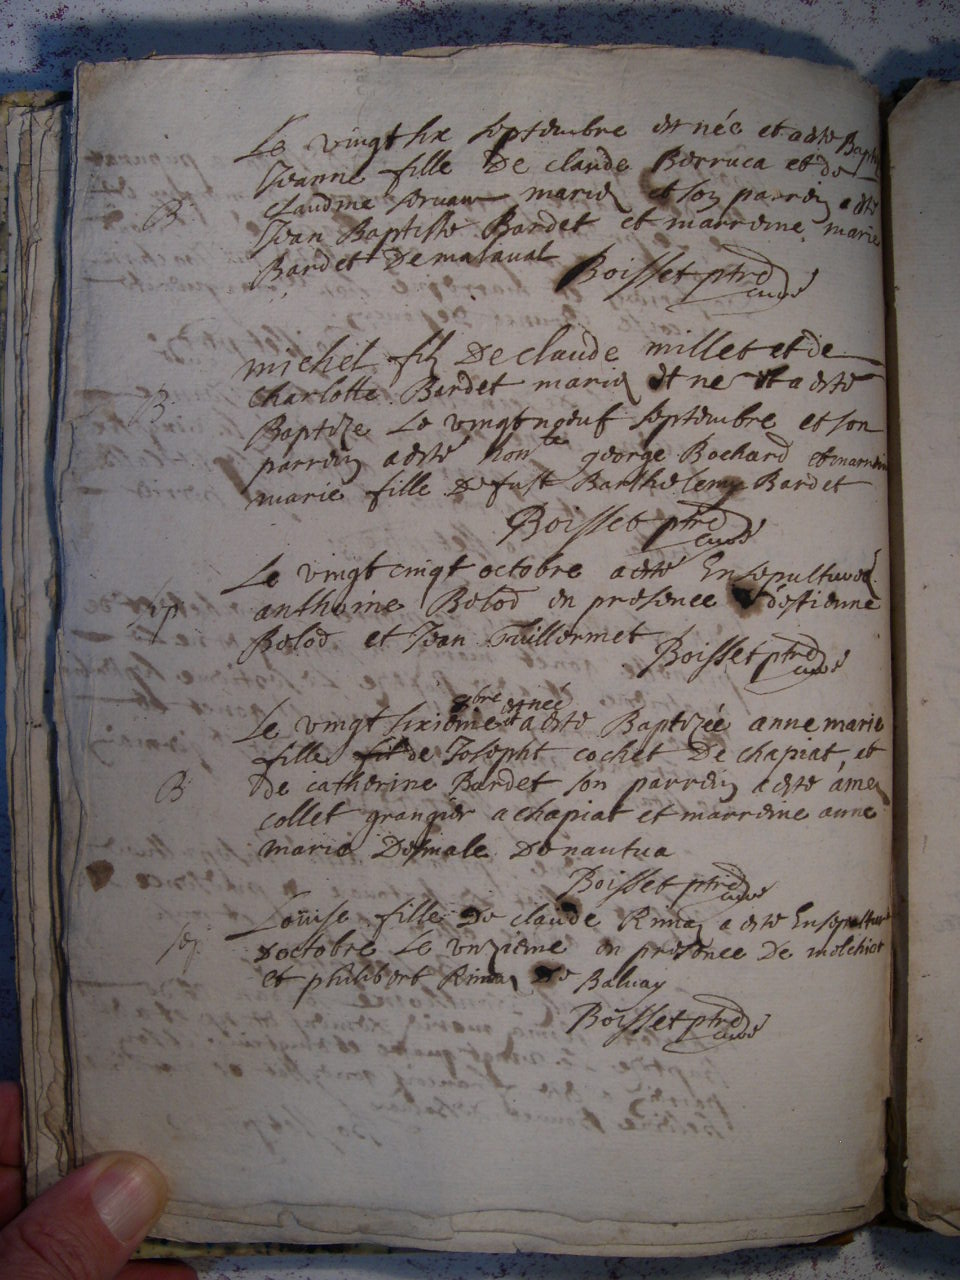 Le vingt six septembre est née et a este Bapti
Jeanne fille De claude Berruca et de
B. claudine servan mariez et son parrein a este
Jean Baptiste Bardet et marreine marie
Bardet De malaual Boisset ptre
curé
michel filz De claude millet et de
B. charlotte Bardet mariez est ne et a este
Baptize Le vingt neuf septembre et son
parrein a este hon ble george Bochard et marrein
marie fille De fust Barthelemy Bardet
Boisset ptre
curé
Le vingt cinqt octobre a este Ensepulturé
sep. anthoine Bolod en presence d'estienne
Bolod et Jean Tuillermet Boisset ptre
curé
8bre est née
Le vingt sixiéme et a este Baptizée anne marie
fille de Josepht cochet De chapiat et
B. de catherine Bardet son parrein a este ame
collet grangier a chapiat et marreine anne
marie De nantua
Boisset ptre
curé
Loüise fille De claude a este Ensepulturé
sep. octobre Le vnzieme en presence De melchiot
et philibert De Baluay
Boisset ptre
curé